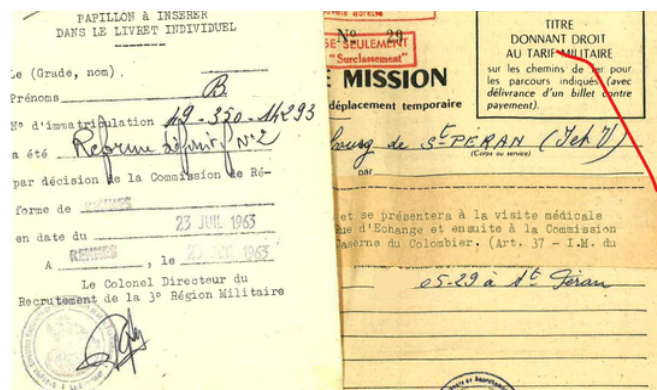 PAPILLON à INSERER
DANS LE LIVRET INDIVIDUEL
Le (Grade, nom)
Prénoms B
N° d'immatriculation 49-350-14293
a été Réforme définitif N°2
par décision de la Commission de Ré-
forme de RENNES
en date du 23 JUIL 1963
A RENNES, le 1963
Le Colonel Directeur du
Recrutement de la 3° Région Militaire
N° 29
SE SEULEMENT
"Surclassement"
MISSION
déplacement temporaire
TITRE
DONNANT DROIT
AU TARIF MILITAIRE
sur les chemins de fer pour
les parcours indiqués (avec
délivrance d'un billet contre
payement).
bourg de St PÉRAN (I et V)
(Corps ou service)
par
et se présentera à la visite médicale
Rue d'Echange et ensuite à la Commission
Caserne du Colombier. (Art. 37 - I.M. du
05-29 à St Péran